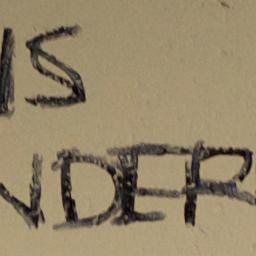 IS
NDER